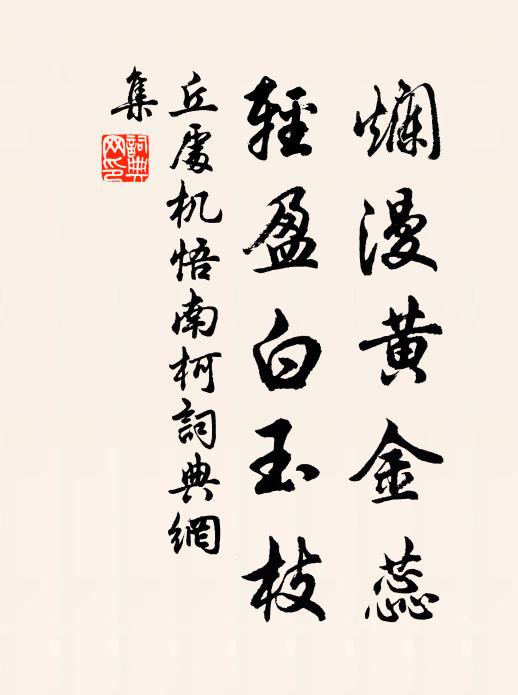 爛漫黄金蕊
輕盈白玉枝
丘處机悟南柯詞典網
集
詞典
网印